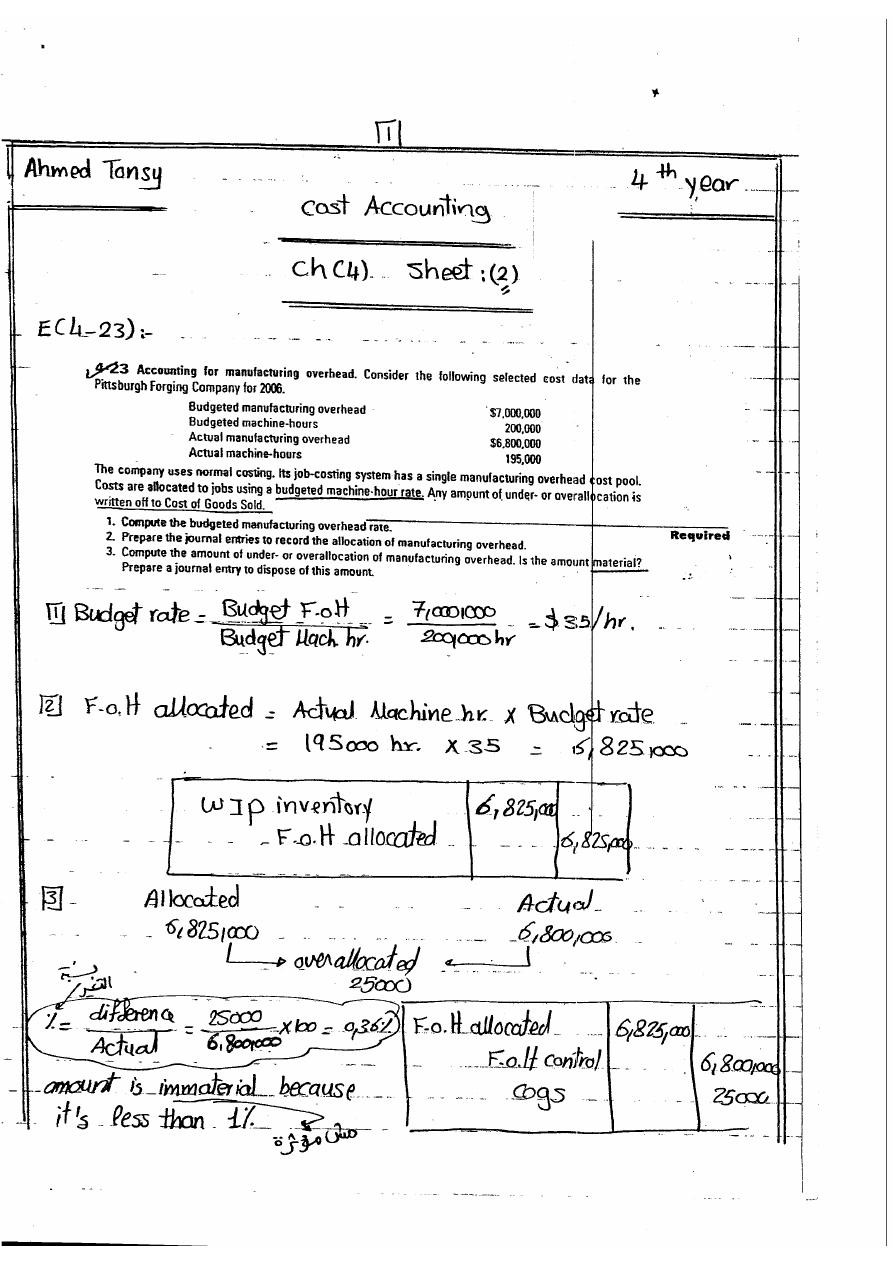 1
Ahmed Tansy
4th year
Cost Accounting
Ch(4) Sheet:(2)
E(4-23):-
4-23 Accounting for manufacturing overhead. Consider the following selected cost data for the
Pittsburgh Forging Company for 2006.
Budgeted manufacturing overhead $7,000,000
Budgeted machine-hours 200,000
Actual manufacturing overhead $6,800,000
Actual machine-hours 195,000
The company uses normal costing. Its job-costing system has a single manufacturing overhead cost pool.
Costs are allocated to jobs using a budgeted machine-hour rate. Any amount of under- or overallocation is
written off to Cost of Goods Sold.
1. Compute the budgeted manufacturing overhead rate.
Required
2. Prepare the journal entries to record the allocation of manufacturing overhead.
3. Compute the amount of under- or overallocation of manufacturing overhead. Is the amount material?
Prepare a journal entry to dispose of this amount.
1 Budget rate = Budget F.o.H / Budget Mach hr. = 7,000,000 / 200,000 hr = $35/hr.
2 F.o.H allocated = Actual Machine hr. x Budget rate
= 195000 hr. x 35 = 6,825,000
WIp inventory 6,825,000
F.o.H allocated 6,825,000
3 Allocated Actual
6,825,000 6,800,000
overallocated
25000
% = difference / Actual = 25000 / 6,800,000 x100 = 0,36%
F.o.H allocated 6,825,000
F.o.H control 6,800,000
cogs 25000
amount is immaterial because
it's less than 1%
مش مؤثرة